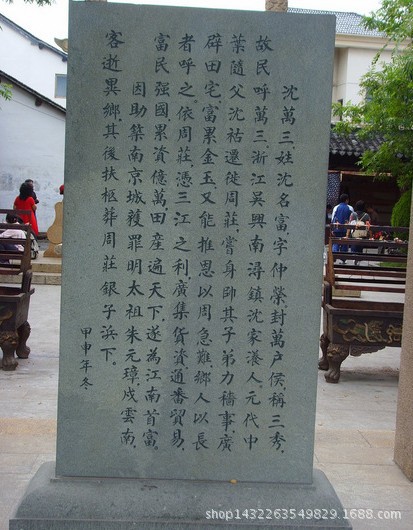 沈萬三姓沈名富,字仲榮,封萬户侯,稱三秀,
故民呼萬三,浙江吴興南潯鎮沈家漾人,元代中
葉隨父沈祐遷徙周莊,嘗身帥其子弟力穡事,廣
辟田宅,富累金玉,又能推恩以周急難,鄉人以長
者呼之,依周莊,憑三江之利,廣集貨資,通番貿易,
富民强國,累資億萬,田産遍天下,遂為江南首富,
因助築南京城,獲罪明太祖朱元璋,戍雲南,
客逝異鄉,其後扶柩葬周莊銀子浜下.
甲申年冬
shop1432263549829.1688.com